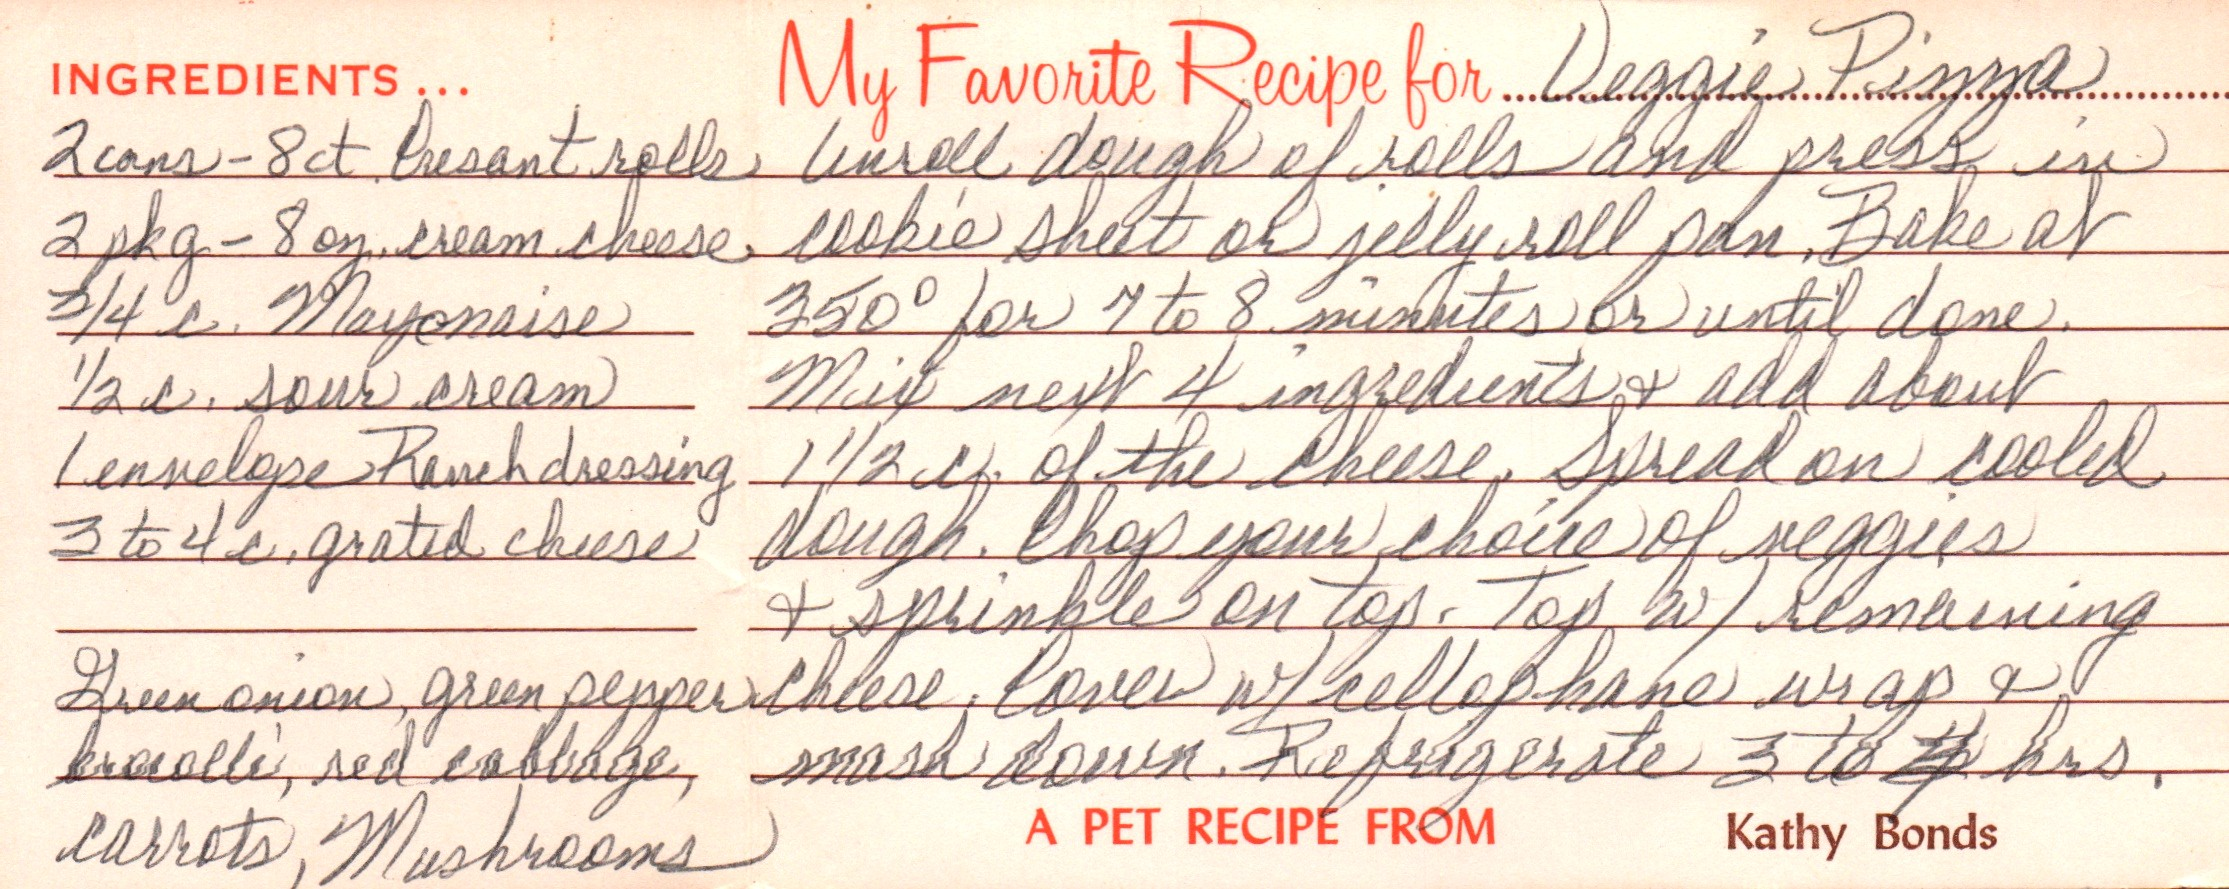 My Favorite Recipe for Veggie Pizza
INGREDIENTS ...
2 cans - 8 ct. Cresant rolls
2 pkg - 8 oz. cream cheese
3/4 c. Mayonaise
1/2 c. sour cream
1 envelope Ranch dressing
3 to 4 c. grated cheese
Green onion, green pepper
brocolli, red cabbage,
carrots, Mushrooms
Unroll dough of rolls and press in
cookie sheet or jelly roll pan. Bake at
350° for 7 to 8 minutes or until done.
Mix next 4 ingredients & add about
1 1/2 c. of the cheese. Spread on cooled
dough. Chop your choice of veggies
& sprinkle on top. Top w/ remaining
cheese. Cover w/ cellophane wrap &
mash down. Refrigerate 3 to 4 hrs.
A PET RECIPE FROM Kathy Bonds